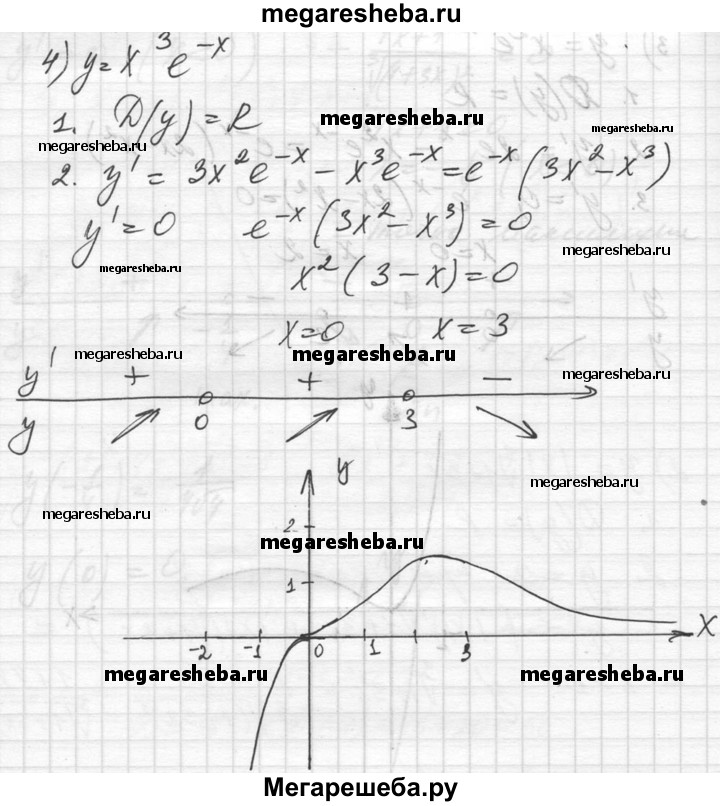 megaresheba.ru
4) y = x³e⁻ˣ
1. D(y) = R
megaresheba.ru
megaresheba.ru
megaresheba.ru
2. y' = 3x²e⁻ˣ - x³e⁻ˣ = e⁻ˣ(3x² - x³)
y' = 0 e⁻ˣ(3x² - x³) = 0
megaresheba.ru
megaresheba.ru
x²(3 - x) = 0
x = 0 x = 3
megaresheba.ru
megaresheba.ru
megaresheba.ru
y' + + -
y 0 3
y
megaresheba.ru
megaresheba.ru
2
megaresheba.ru
1
x
-2 -1 0 1 3
megaresheba.ru
megaresheba.ru
Мегарешеба.ру